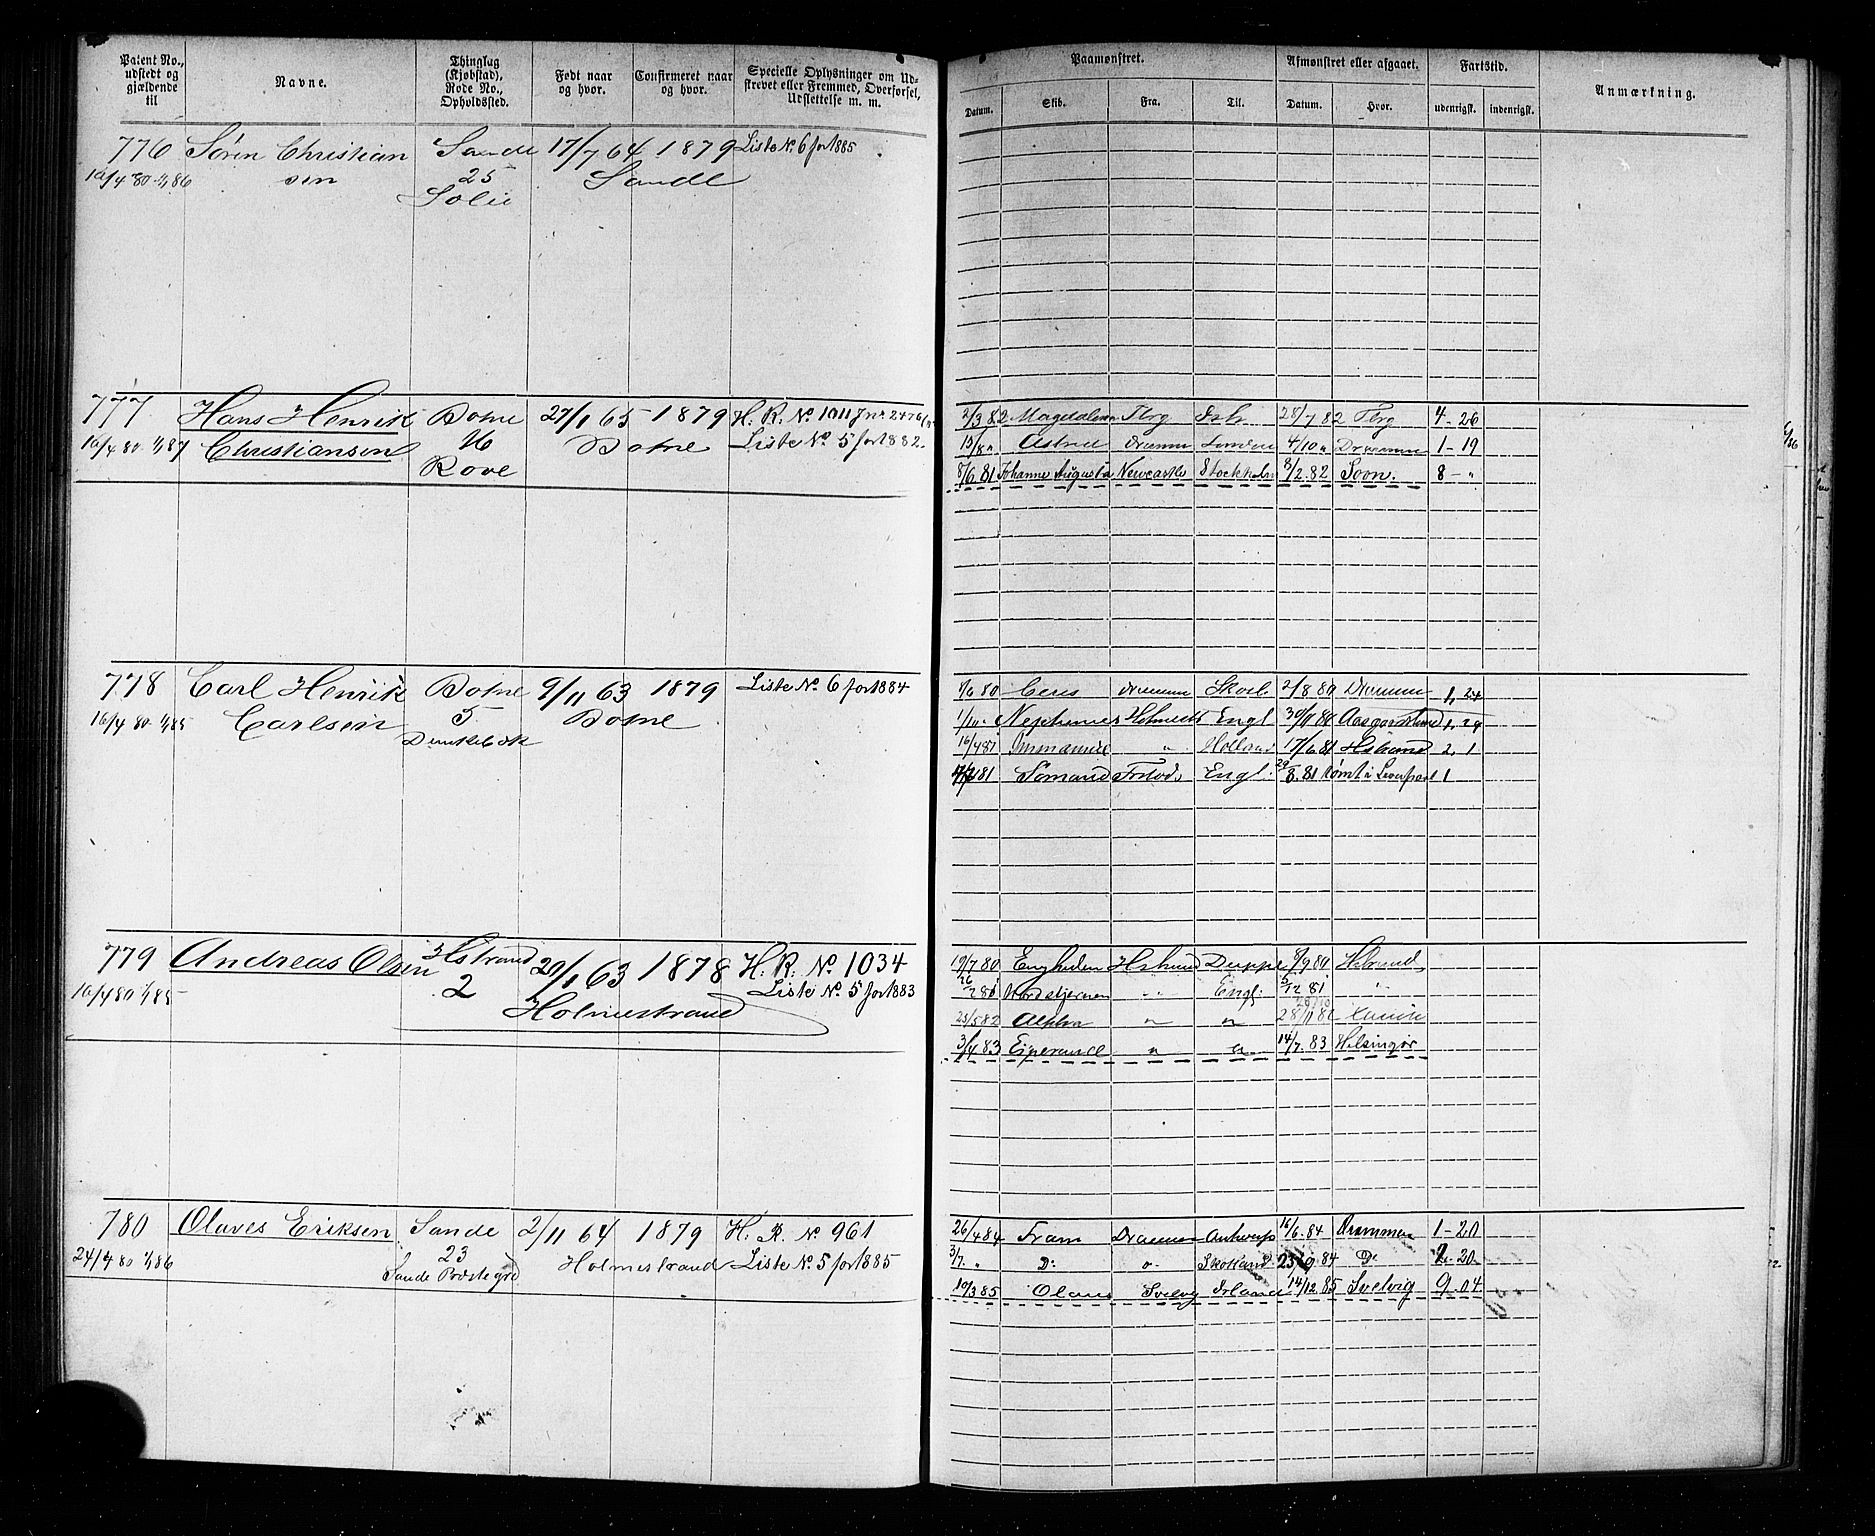 Patent No., udstedt og gjældende til
Navne.
Thinglag (Kjøbstad), Rode No., Opholdssted.
Født naar og hvor.
Confirmeret naar og hvor.
Specielle Oplysninger om Udskrevet eller Fremmed, Overførsel, Udslettelse m. m.
776 Søren Christian Sande 17/7 64 1879 Liste No. 6 for 1885
16/4 80 1/1 86 sen 25 Sande
Solie
777 Hans Henrik Botne 27/1 65 1879 H. R. No 1011
16/4 80 1/1 87 Christiansen Botne Liste No 5 for 1882.
Rove
778 Carl Henrik Botne 9/11 63 1879 Liste No. 6 for 1884
16/4 80 1/1 85 Carlsen 5. Botne
779 Andreas Olsen Hstrand 29/1 63 1878 H. R. No 1034
16/4 80 1/1 85 2 Holmestrand Liste No. 5 for 1883
780 Olaves Eriksen Sande 2/11 64 1879 H. R. No 961
24/4 80 1/1 86 23 Holmestrand Liste No. 5 for 1885
Sande Præstegrd
Paamønstret.
Afmønstret eller afgaaet.
Fartstid.
Anmærkning.
Datum. Skib. Fra. Til. Datum. Hvor. udenrigsk. indenrigsk.
2/3 82 Magdalena Tbrg 28/7 82 Tbrg 4-26
13/8 " Astrea Dramm London 4/10 " Drammen 1-19
8/6 81 Johanne Augusta Newcastle Stockholm 8/2. 82 Soon. 8 - "
Ceres Dramm Skotl. 2/8 80 Drammen 1, 24
1/10 " Neptunus Engl 30/11 80 Aasgaardstrand
16/4 81 " Holland 17/6 81 Hstrand 2, 1
81 Engl. 29/8. 81 rømt i Liverpool 1
19/7 80 Hstrand 9/9 80 Hstrand
Nordstjernen " Engl: 81 "
25/5 82 Alpha " "
3/4 83 " " 14/7. 83 Helsingør
26/4 84 Fram Drammen Antwerp 16/6. 84 Drammen 1-20
3/7. " Do " Skotland 84 Do 2.-20.
10/3 85 Olaus Svelvig Irland 14/12. 85 Svelvig 9.-04